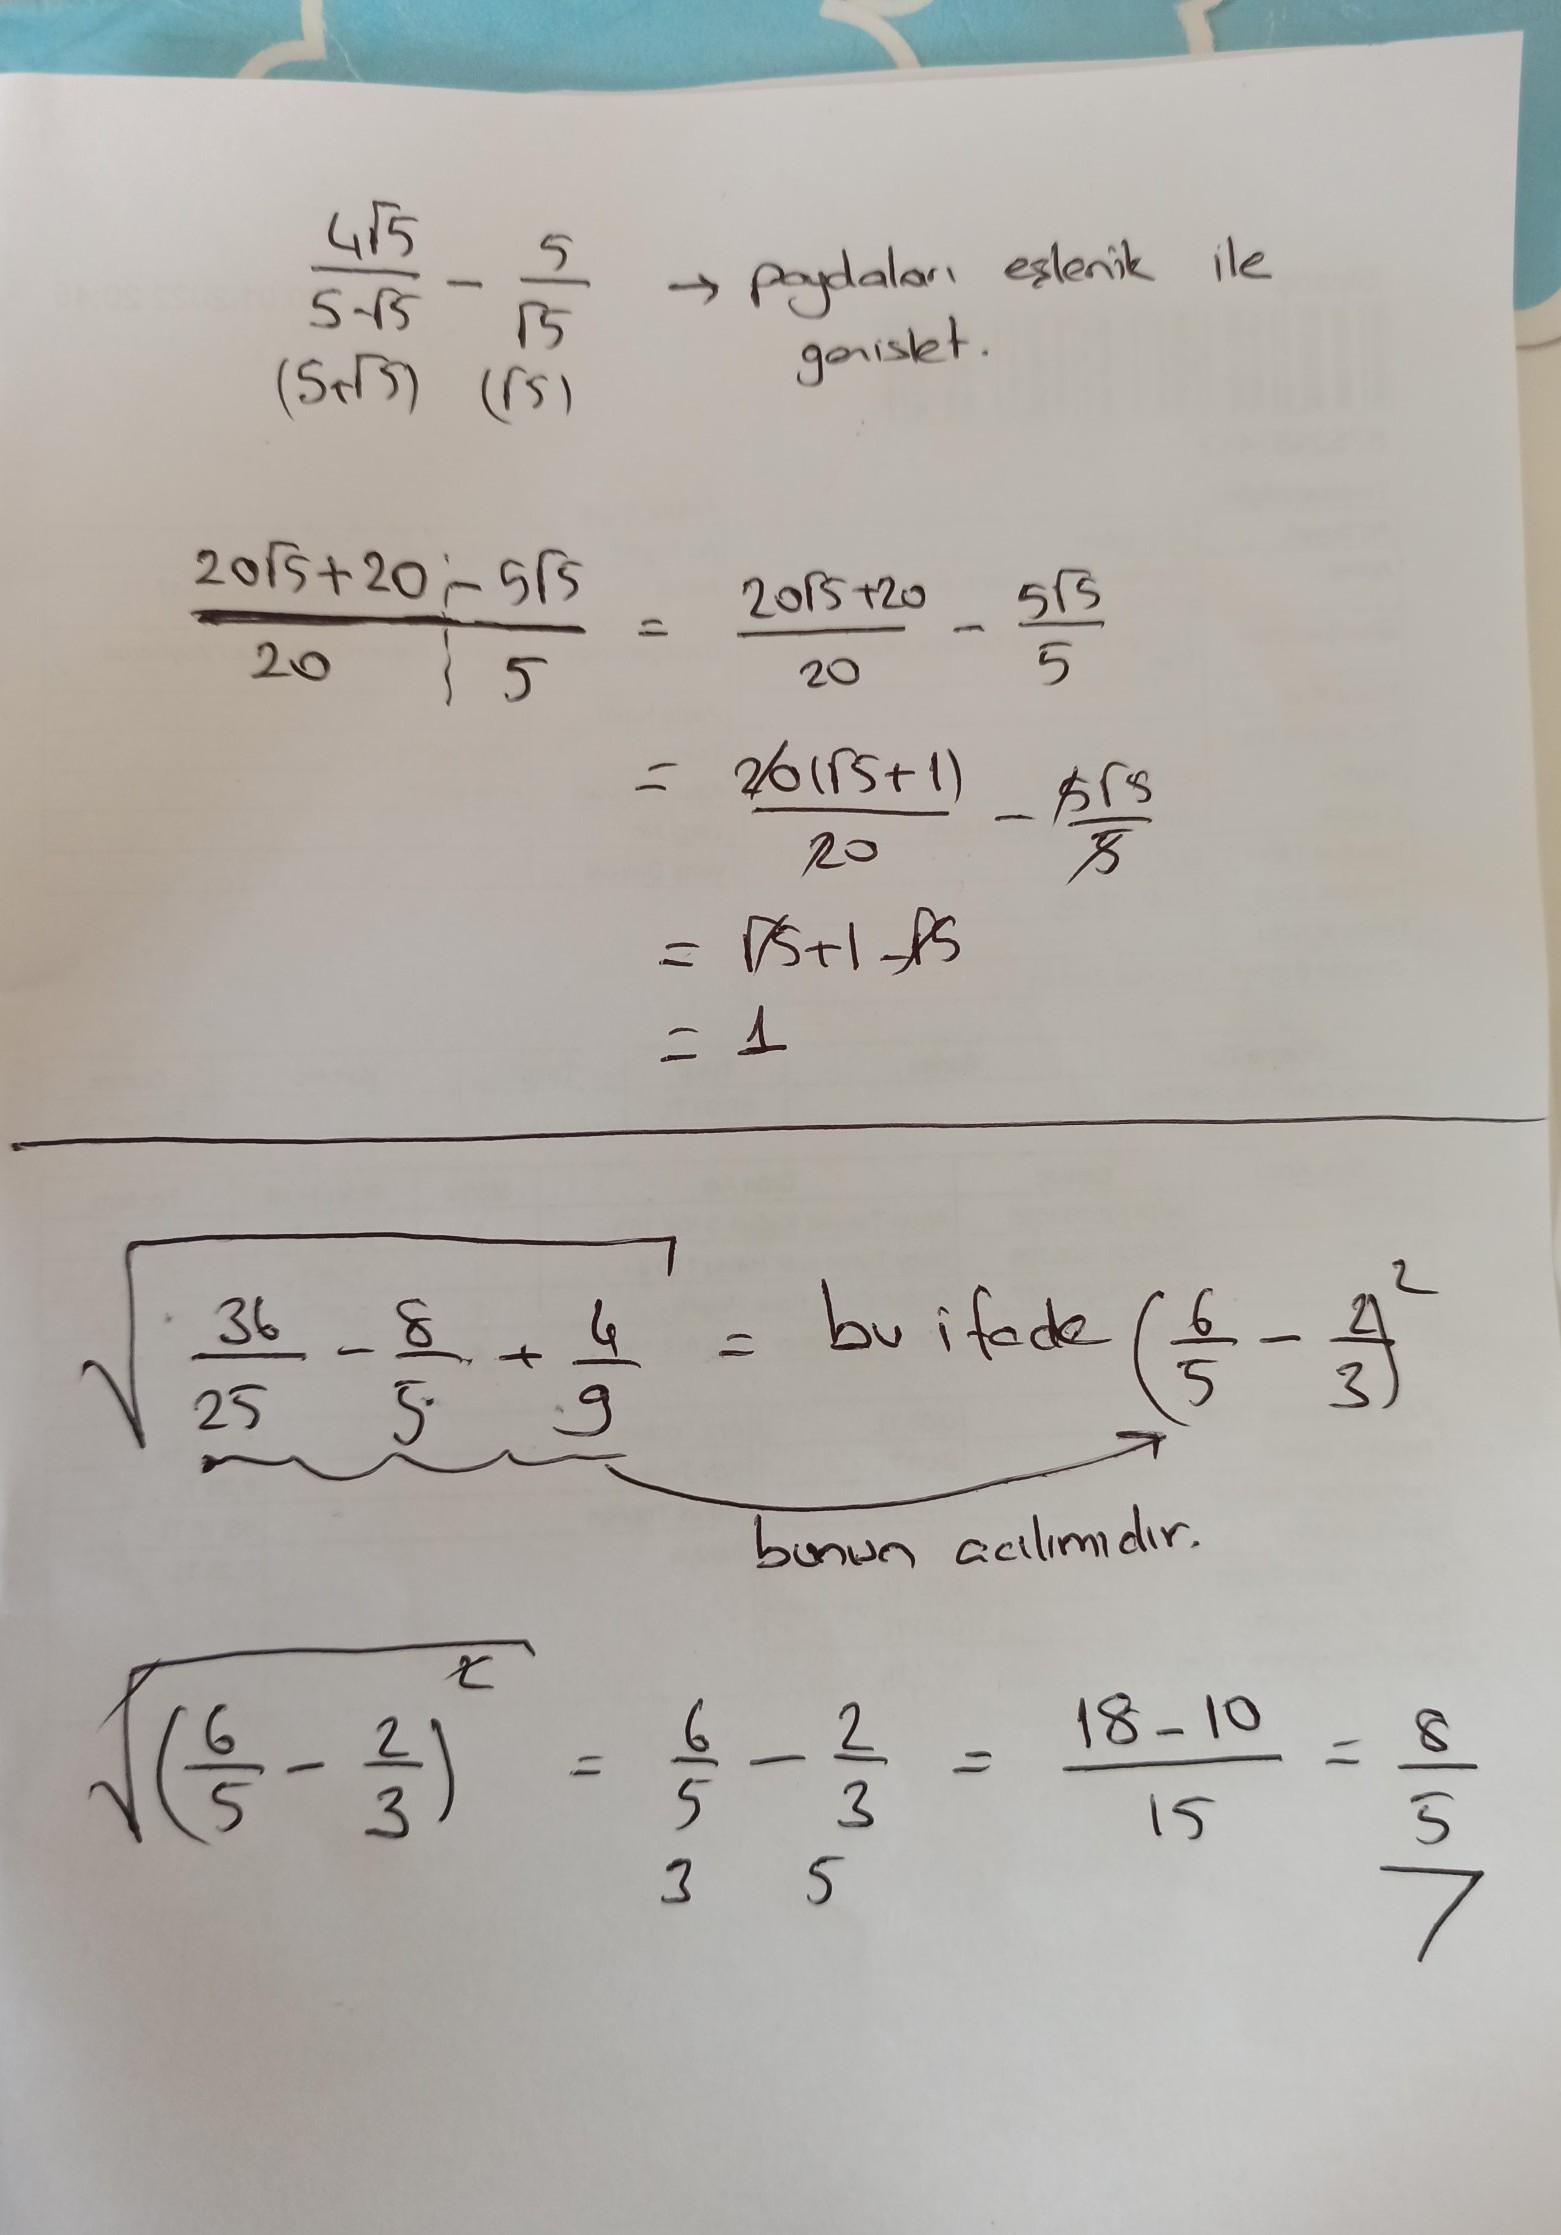 4√5/5-√5 - 5/√5 → paydaları eşlenik ile
(5+√5) (√5) genislet.
20√5+20/20 - 5√5/5 = 20√5+20/20 - 5√5/5
= 20(√5+1)/20 - 5√5/5
= √5+1-√5
= 1
√(36/25 - 8/5 + 4/9) = bu ifade (6/5 - 2/3)²
bunun acılımıdır.
√(6/5 - 2/3)² = 6/5 - 2/3 = 18-10/15 = 8/5
3 5